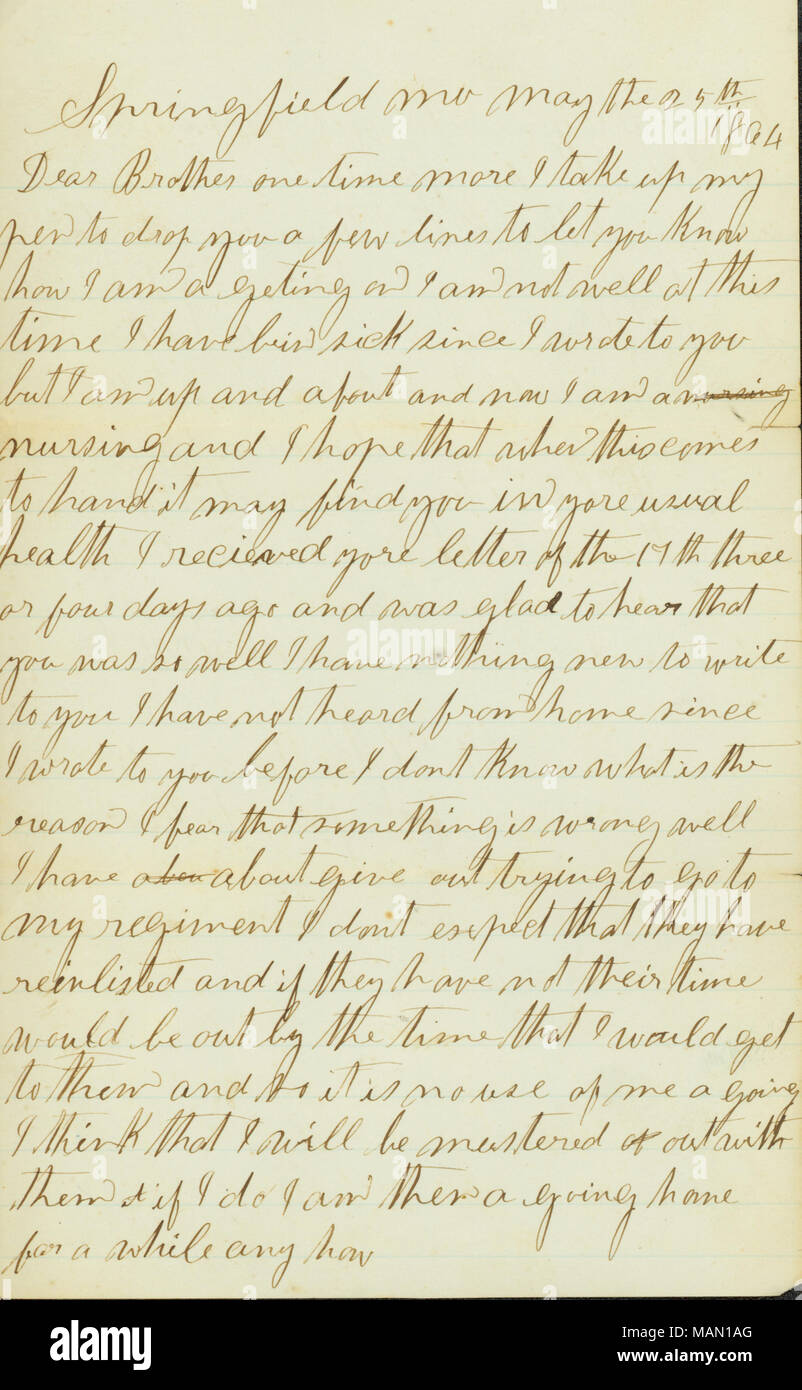 Springfield mo may the 25th
1864
Dear Brother one time more I take up my
pen to drop you a few lines to let you know
how I am a geting on I am not well at this
time I have bin sick since I wrote to you
but I am up and about and now I am a nursing
nursing and I hope that when this comes
to hand it may find you in yore usual
health I recieved yore letter of the 17th three
or four days ago and was glad to hear that
you was so well I have nothing new to write
to you I have not heard from home since
I wrote to you before I dont know what is the
reason I fear that something is wrong well
I have abou about give out trying to go to
my regiment I dont exspect that they have
reinlisted and if they have not their time
would be out by the time that I would get
to them and so it is no use of me a going
I think that I will be mustered out with
them & if I do I am then a going home
for a while any how
alamy
alamy
Image ID: MAN1AG
www.alamy.com